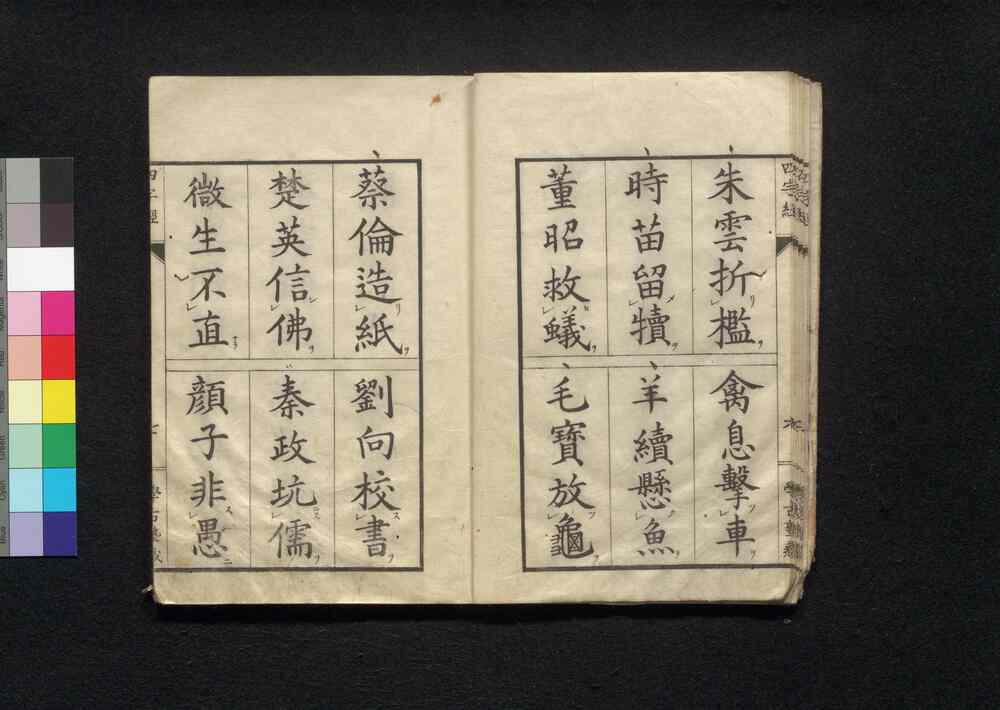 朱雲折檻
禽息擊車
時苗留犢
羊續懸魚
董昭救蟻
毛寶放龜
蔡倫造紙
劉向校書
楚英信佛
秦政坑儒
微生不直
顔子非愚
四字經